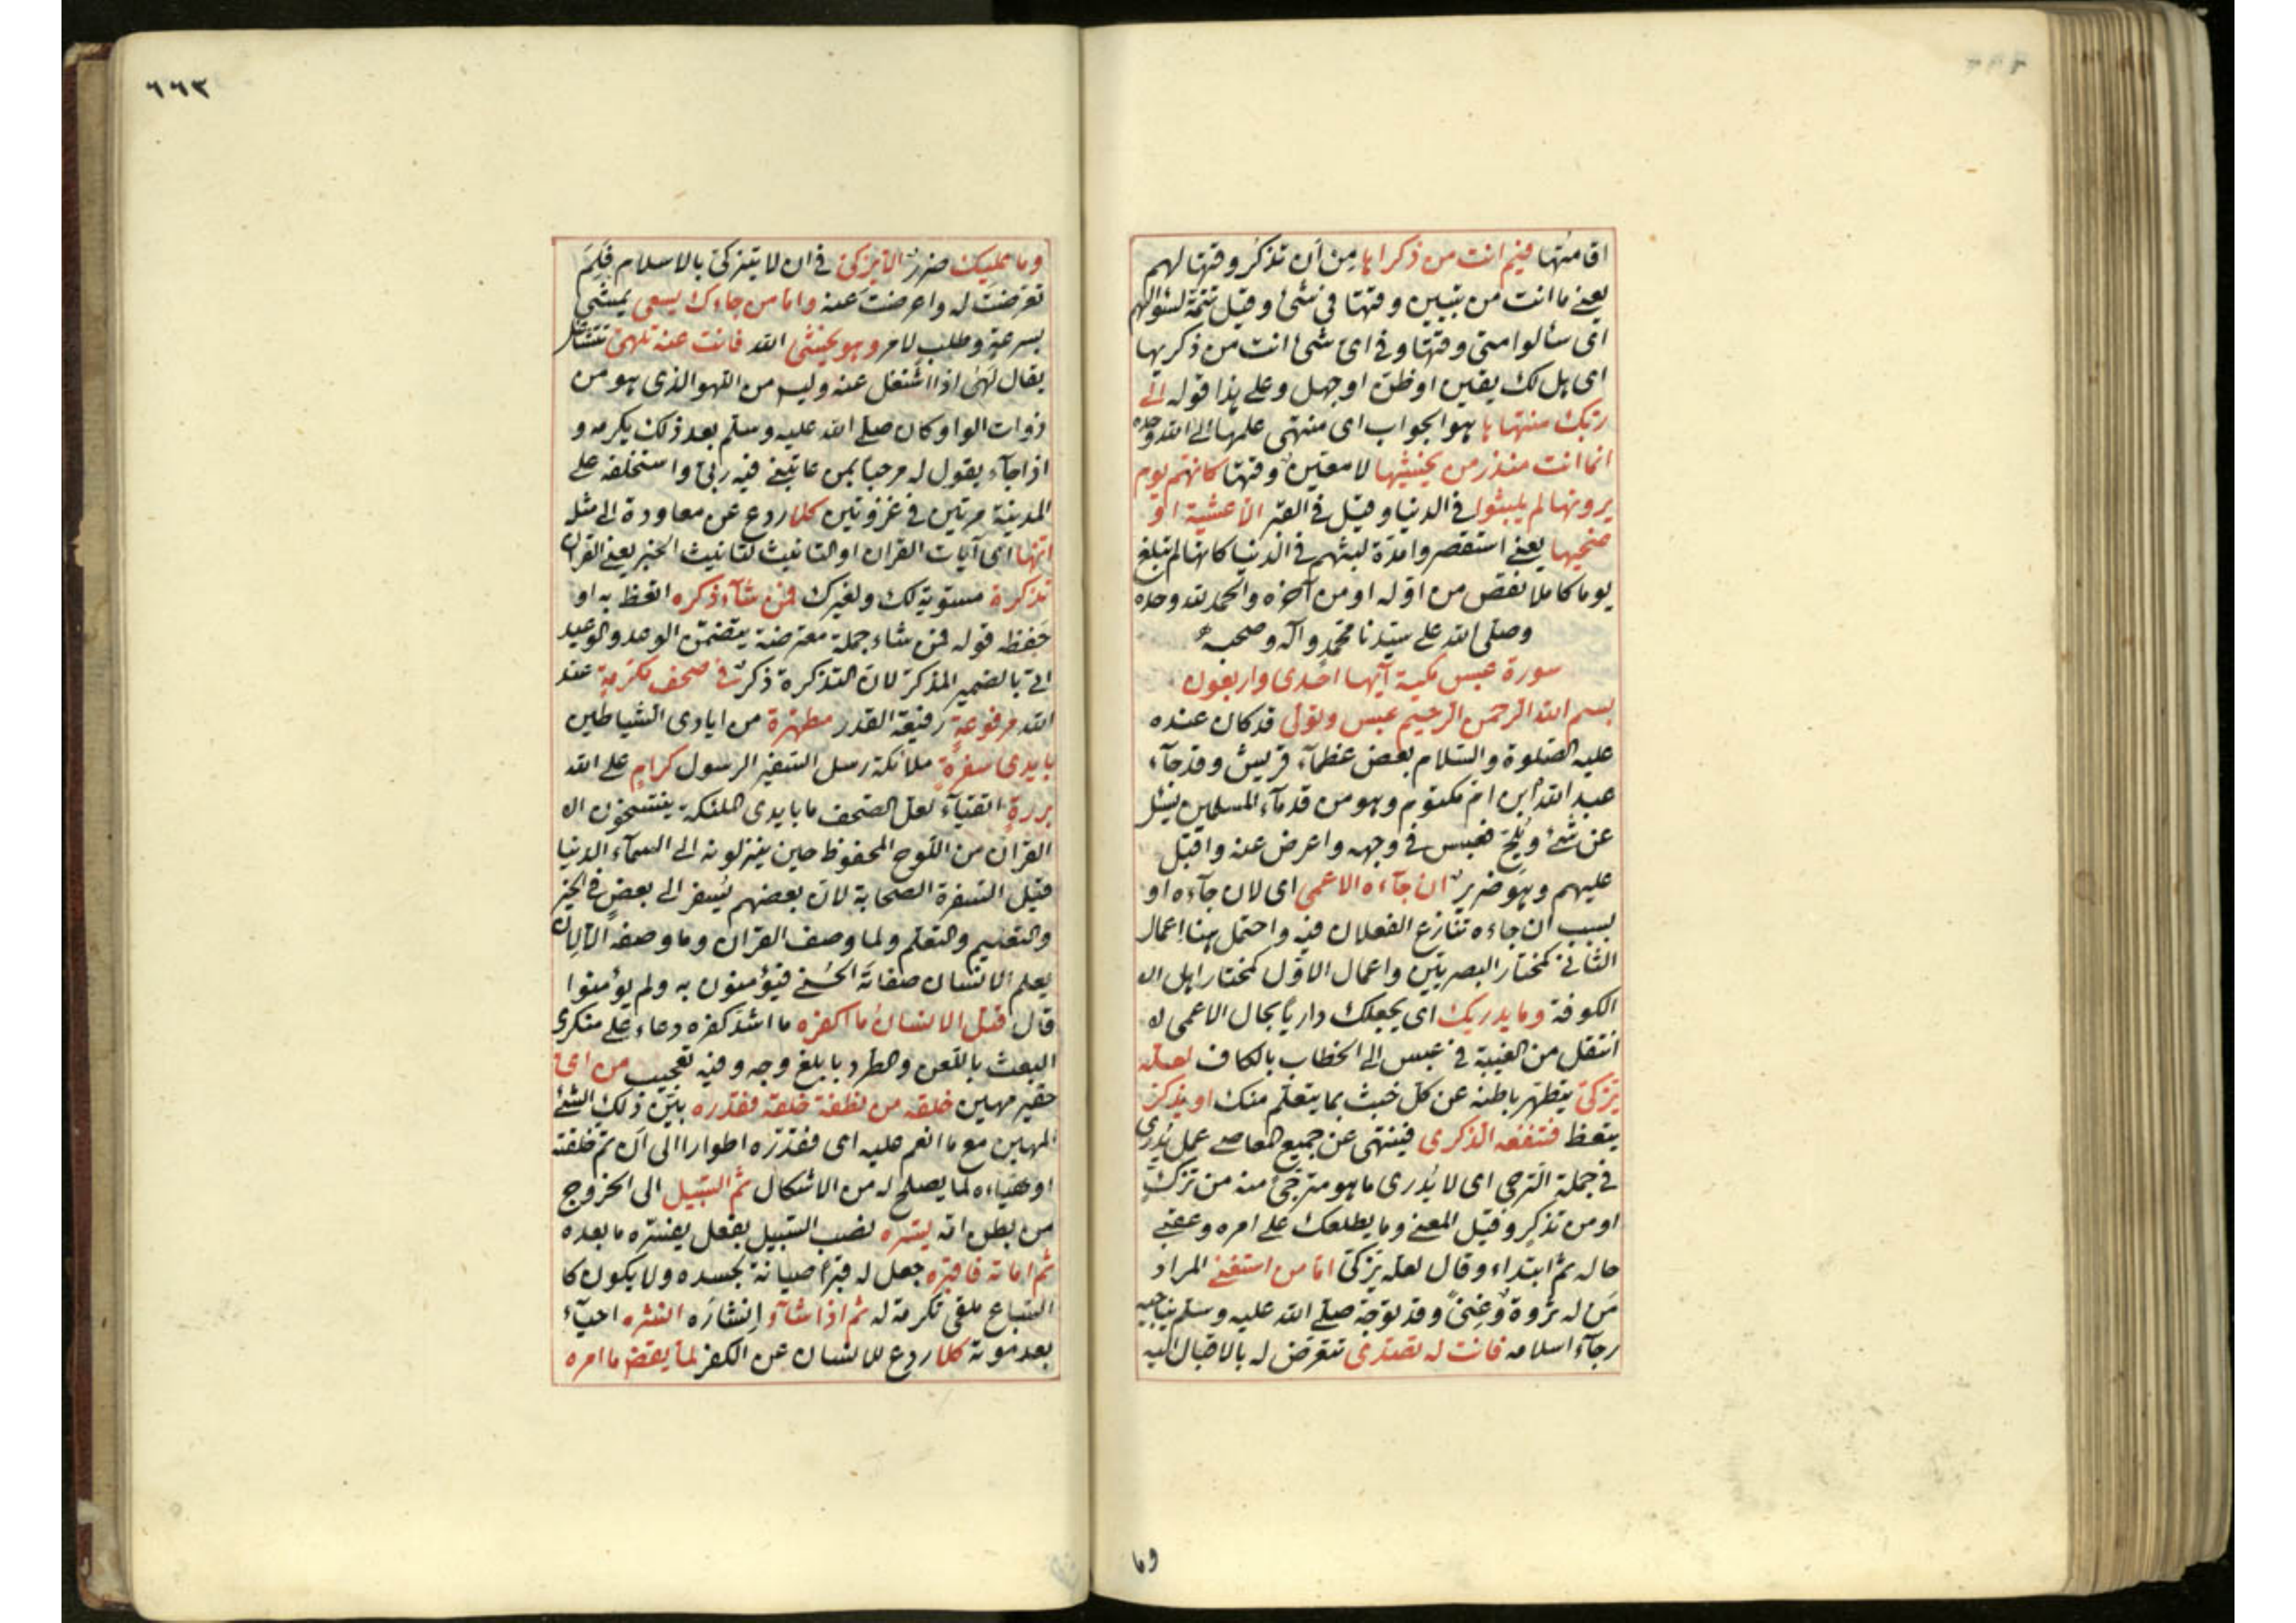 اقامتها فيم انت من ذكراها من أن تذكر وقتها لهم
يعنے ما انت من تبيين وقتها فى شئ وقيل تتمة لسؤالهم
اى سألوا متى وقتها وفى اى شئ انت من ذكريها
اى هل لك يقين او ظن او جهل وعلے هذا قوله الے
ربك منتهاها هو الجواب اى منتهى علمها الے الله وحده
انما انت منذر من يخشيها لا معين وقتها كانهم يوم
يرونها لم يلبثوا فى الدنيا وقيل فى القبر الا عشية او
ضحيها يعنے استقصروا مدة لبثهم فى الدنيا كانها لم تبلغ
يوما كاملا نقص من اوله او من آخره والحمد لله وحده
وصلى الله علے سيدنا محمد وآله وصحبه
سورة عبس مكية آيها احدى واربعون
بسم الله الرحمن الرحيم عبس وتولى قد كان عنده
عليه الصلوة والسلام بعض عظمآء قريش وقد جآء
عبد الله ابن ام مكتوم وهو من قدمآء المسلمين يسئل
عن شئ ويلح فعبس فى وجهه واعرض عنه واقبل
عليهم وهو ضرير ان جآءه الاعمى اى لان جآءه او
بسبب ان جاءه تنازع الفعلان فيه واحتمل هنا اعمال
الثانے كمختار البصريين واعمال الاول كمختار اهل
الكوفة وما يدريك اى يجعلك داريا بحال الاعمى
انتقل من الغيبة فى عبس الى الخطاب بالكاف لعله
يزكى يتطهر باطنه عن كل خبث بما يتعلم منك او يذكر
يتعظ فتنفعه الذكرى فينتهى عن جميع المعاصے عمل يدرى
فى جملة الترجى اى لا يدرى ما هو مترجى منه من تزك
او من تذكر وقيل المعنے وما يطلعك علے امره وعقبے
حاله ثم ابتداء وقال لعله يزكى اما من استغنے المراد
من له ثروة وغنى وقد توجه صلے الله عليه وسلم يناجيه
رجآء اسلامه فانت له تصدى تتعرض له بالاقبال اليه
وما
٦٦٣
وما عليك ضرر الا يزكى فى ان لا يتزكى بالاسلام فلم
تعرضت له واعرضت عنه واما من جاءك يسعى يمشى
بسرعة وطلب لامر وهو يخشى الله فانت عنه تلهى تتشاغل
يقال لهى اذا اشتغل عنه وليس من اللهو الذى هو من
ذوات الواو وكان صلے الله عليه وسلم بعد ذلك يكرمه و
اذا جآء يقول له مرحبا بمن عاتبنے فيه ربى واستخلفه علے
المدينة مرتين فى غزوتين كلا ردع عن معاودة الى مثله
انها اى آيات القرآن او التانيث لتانيث الخبر يعنے القرآن
تذكرة مستوية لك ولغيرك فمن شآء ذكره اتعظ به او
حفظ قوله فمن شاء جملة معترضة يتضمن الوعد والوعيد
اتى بالضمير المذكر لان التذكرة ذكر فى صحف مكرمة عند
الله مرفوعة رفيعة القدر مطهرة من ايادى الشياطين
بايدى سفرة ملائكة رسل السفير الرسول كرام علے الله
بررة اتقيآء لعل الصحف ما بايدى الملئكة ينتسخون
القرآن من اللوح المحفوظ حين ينزلونه الے السمآء الدنيا
قيل السفرة الصحابة لان بعضهم يسفر الے بعض فى الخير
والتعليم والتعلم ولما وصف القرآن وما وصفه الا لان
يعلم الانسان صفاته الحسنے فيؤمنون به ولم يؤمنوا
قال قتل الانسان ما اكفره ما اشد كفره دعاء علے منكرى
البعث باللعن والطرد بابلغ وجه وفيه تعجيب من اى
حقير مهين خلقه من نطفة خلقه فقدره بين ذلك الشئ
المهين مع ما انعم عليه اى فقدره اطوارا الى ان تم خلقته
او هياءه لما يصلح له من الاشكال ثم السبيل الى الخروج
من بطن امه يسره نصب السبيل بفعل يفسره ما بعده
ثم اماته فاقبره جعل له قبرا صيانة لجسده ولا يكون كا
السباع ملقى تكرمة له ثم اذا شآء انشاره انشره احيآء
بعد موته كلا ردع للانسان عن الكفر لما يقض ما امره